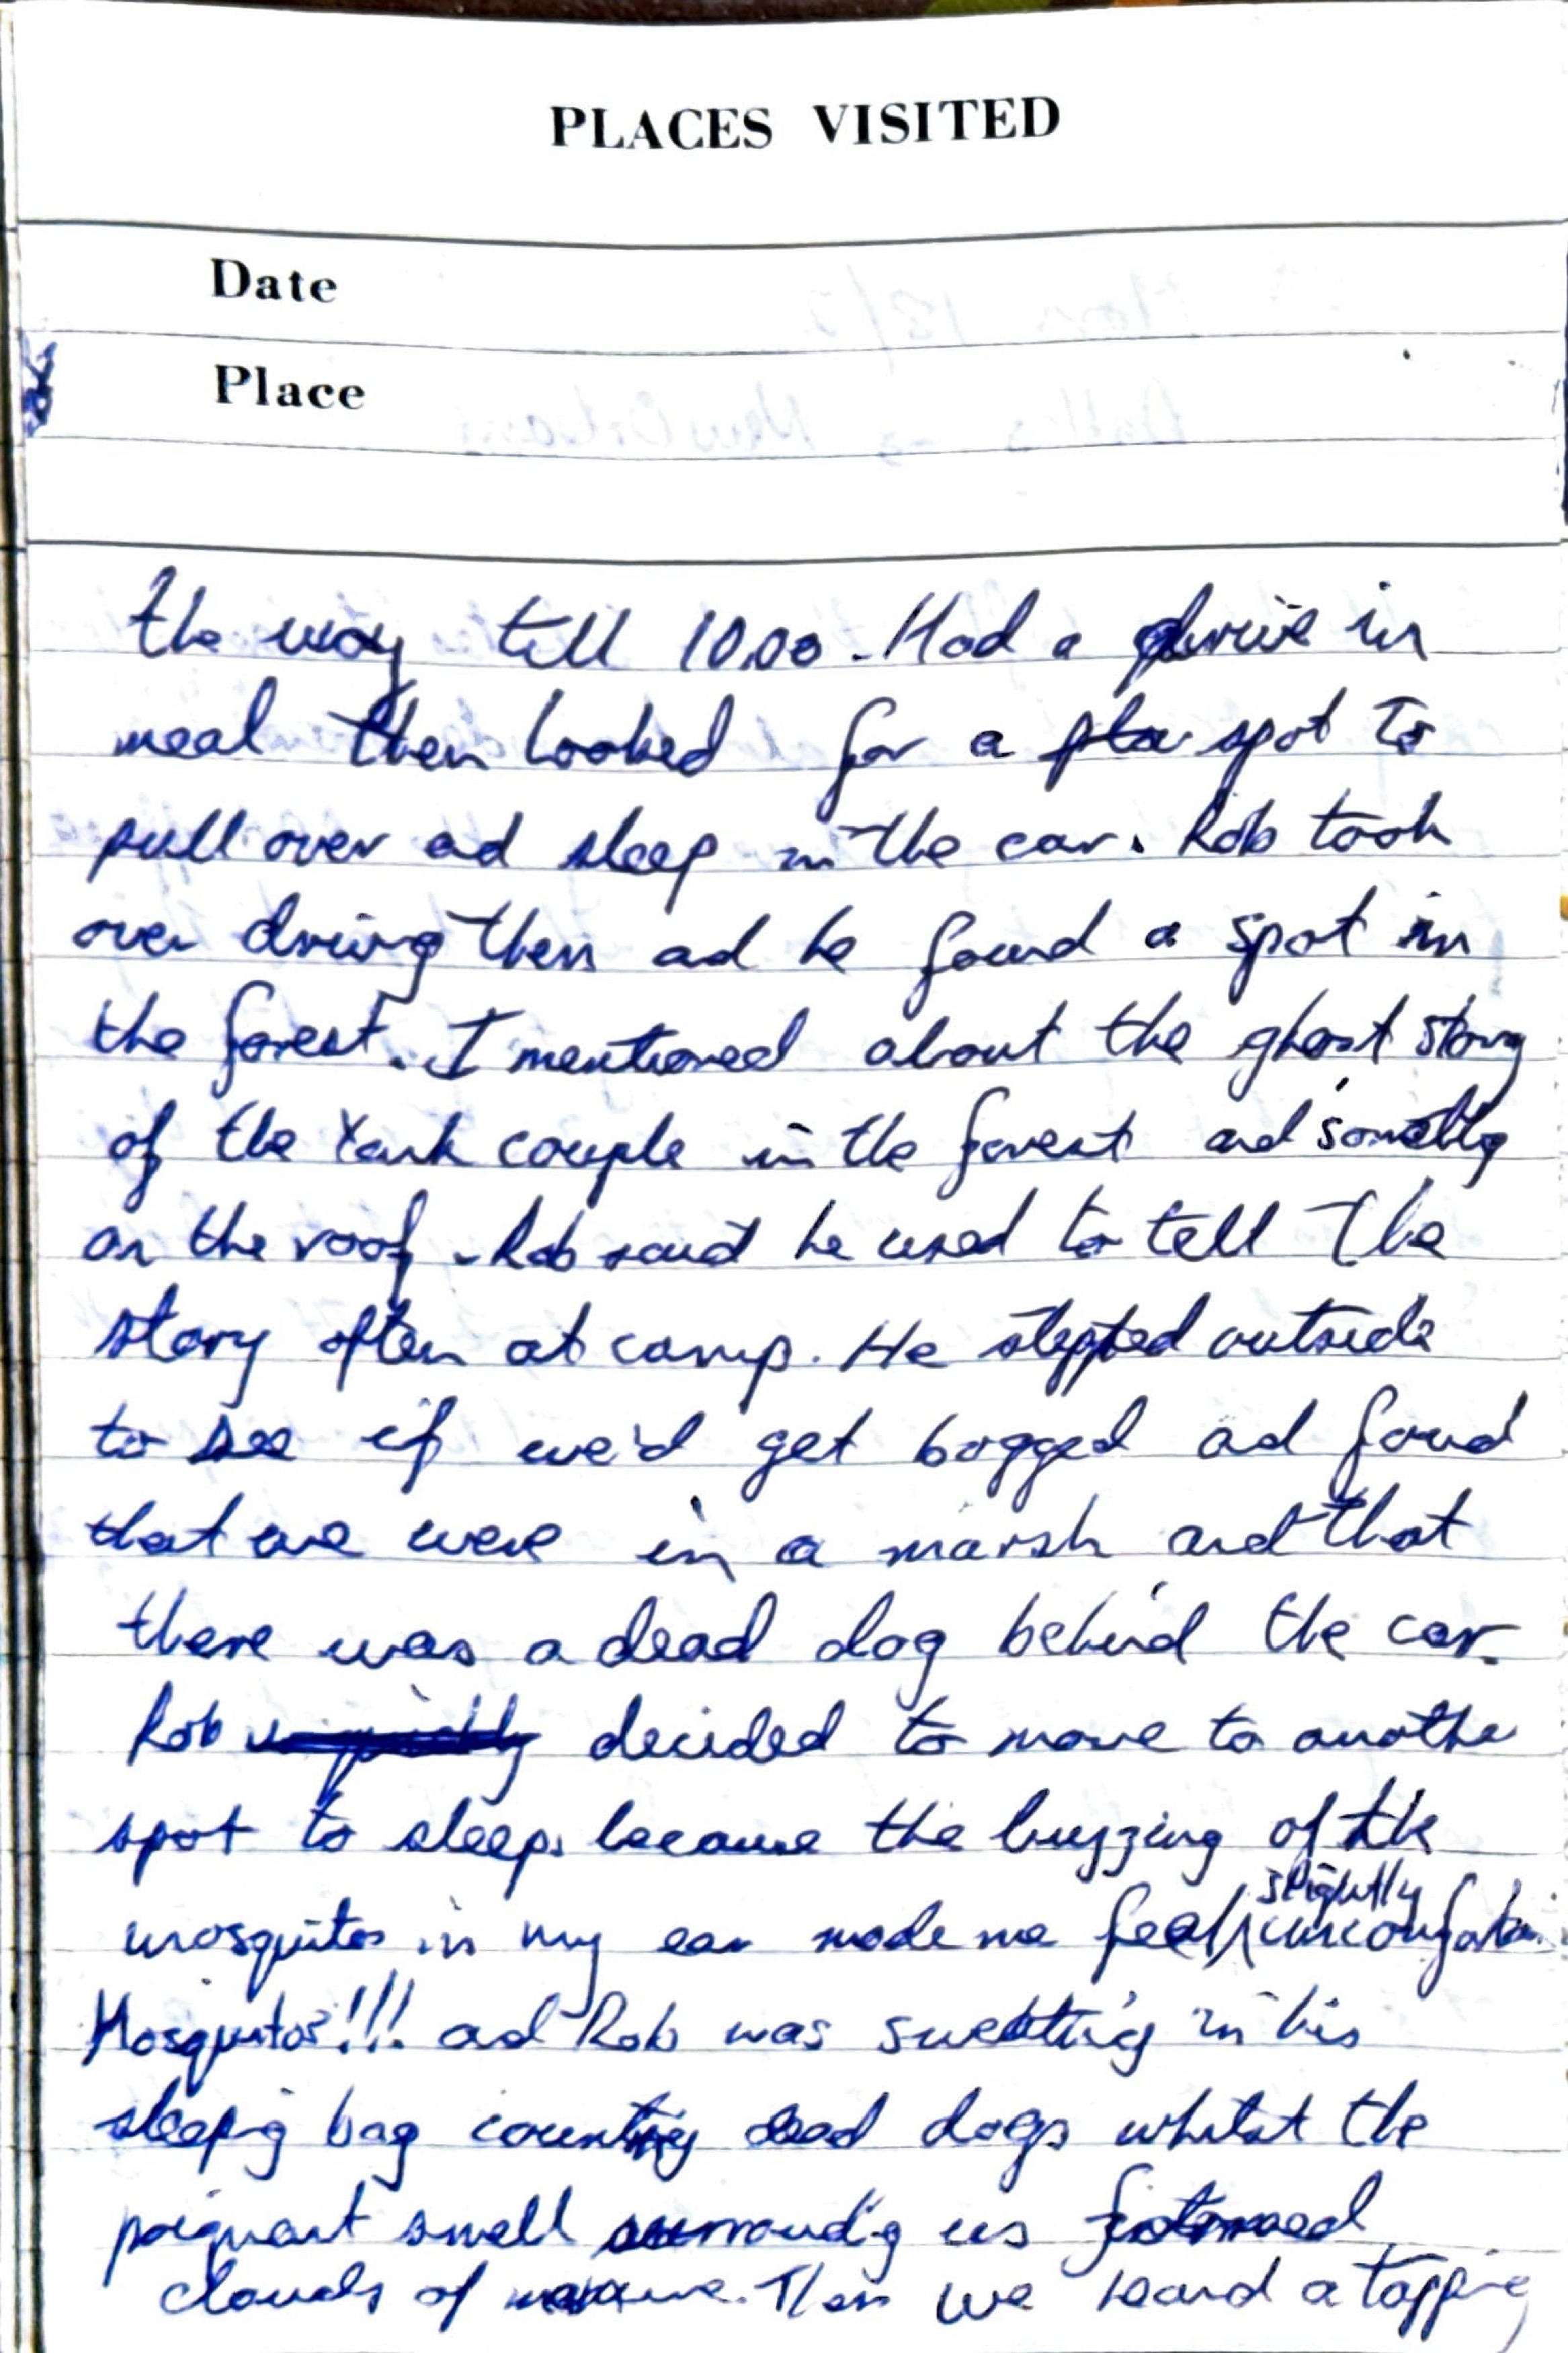 PLACES VISITED
Date
Place
the way till 10.00. Had a drive in
meal then looked for a pla spot to
pull over ad sleep in the car. Rob took
over driving then ad he found a spot in
the forest. I mentioned about the ghost story
of the Yank couple in the forest and somethg
on the roof. Rob said he used to tell the
story often at camp. He stepped outside
to see if we'd get bogged ad found
that we were in a marsh and that
there was a dead dog behind the car.
Rob decided to move to anothe
spot to sleep because the buzzing of the
slightly
mosquitos in my ear made me feel uncomfortable
Mosquitos!!! ad Rob was sweatting in his
sleepig bag counting dead dogs whilst the
poignant smell surroundg us formed
clouds of. Then we heard a tapping